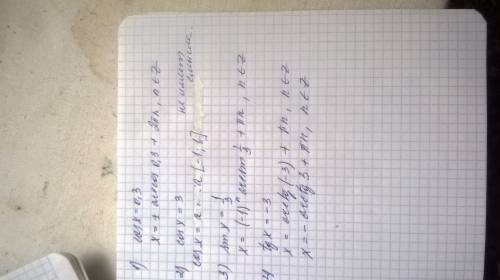 1) cos x = 0,3
x = ± arccos 0,3 + 2πn, n ∈ Z
2) cos x = 3
cos x = a - a [-1; 1] не имеет смысла.
3) sin x = 1/3
x = (-1)ⁿ arcsin 1/3 + πn, n ∈ Z
4) tg x = -3
x = arctg (-3) + πn, n ∈ Z
x = - arctg 3 + πn, n ∈ Z